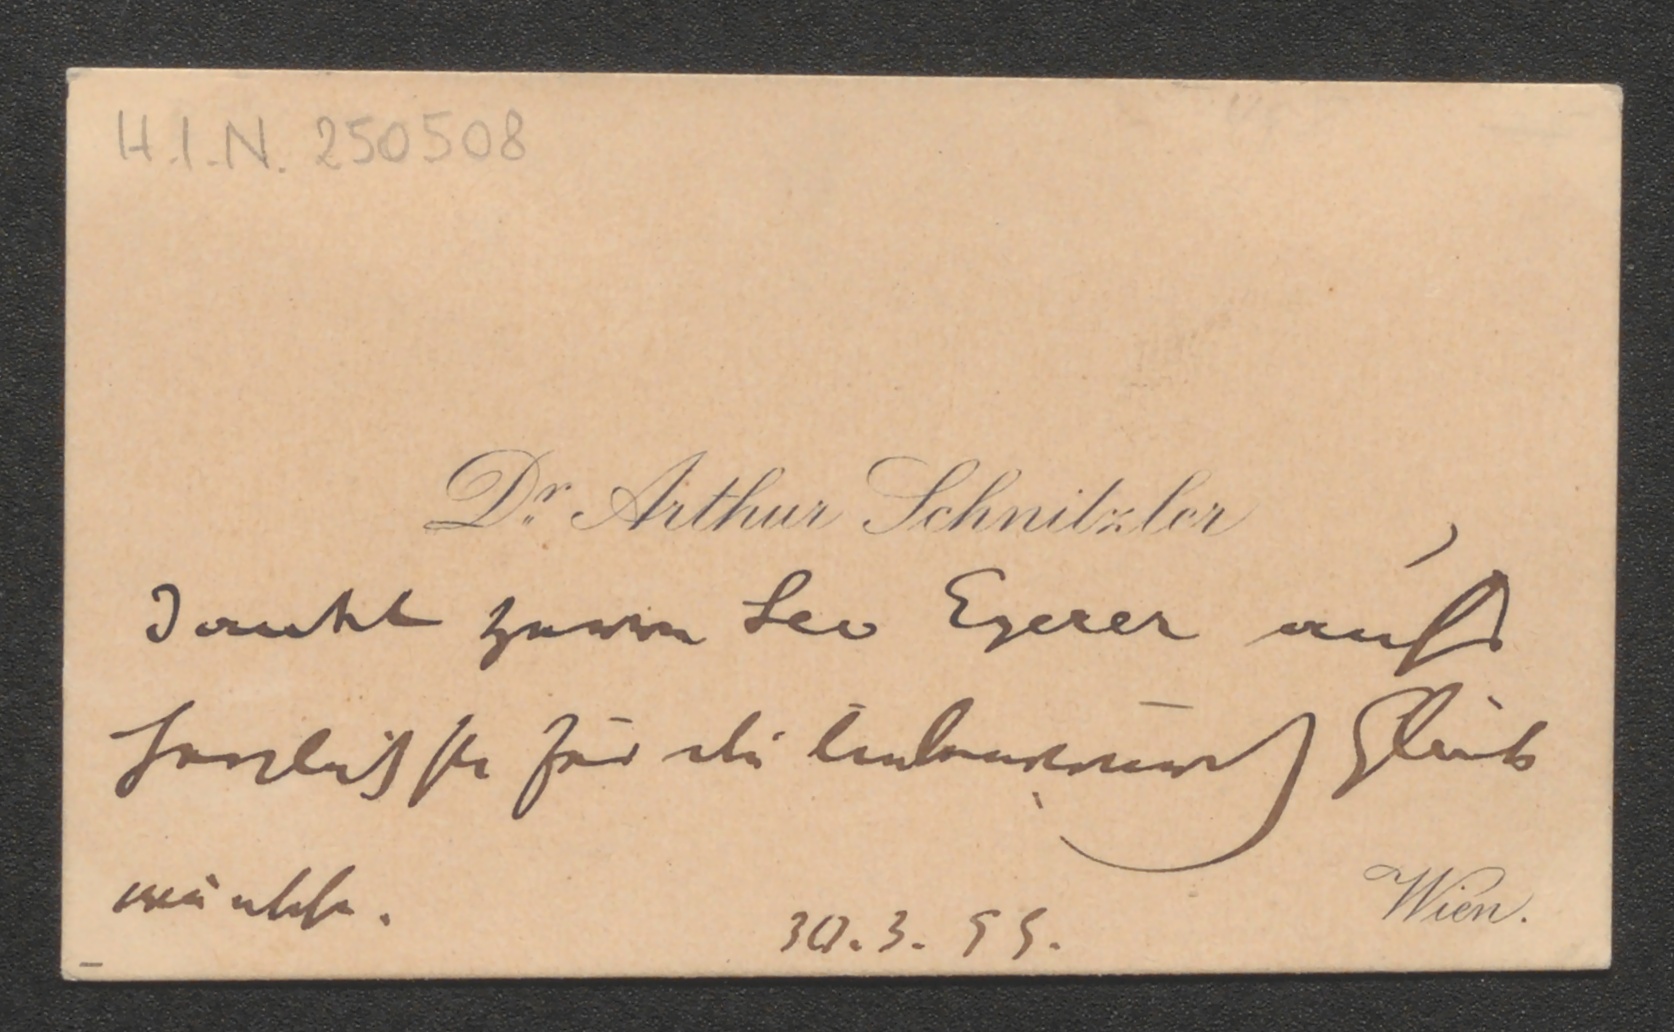 H.I.N. 250508
Dr. Arthur Schnitzler
dankt Herrn Leo Egerer aufs
herzlichste für die liebenswürd Glück
wünsche.
30.3.99.
Wien.